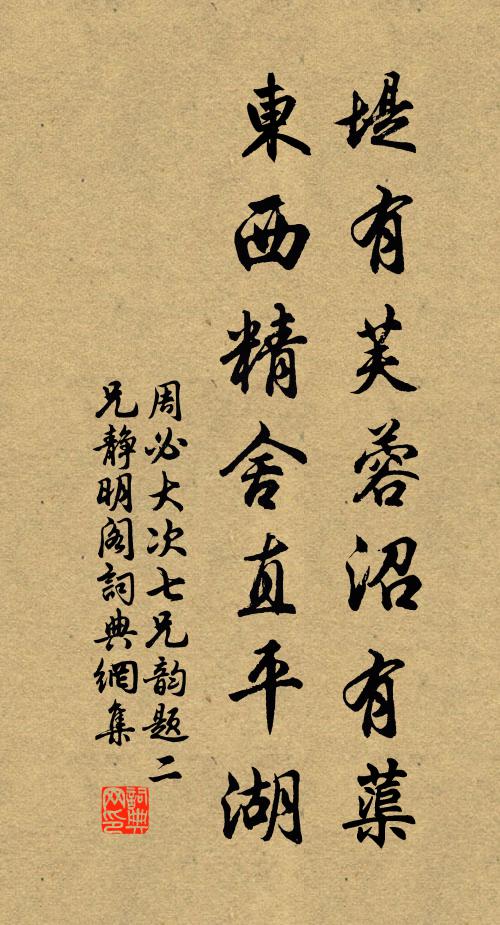 堤有芙蓉沼有蕖
東西精舍直平湖
周必大次七兄韵題二
兄靜明閣詞典網集
詞典网印